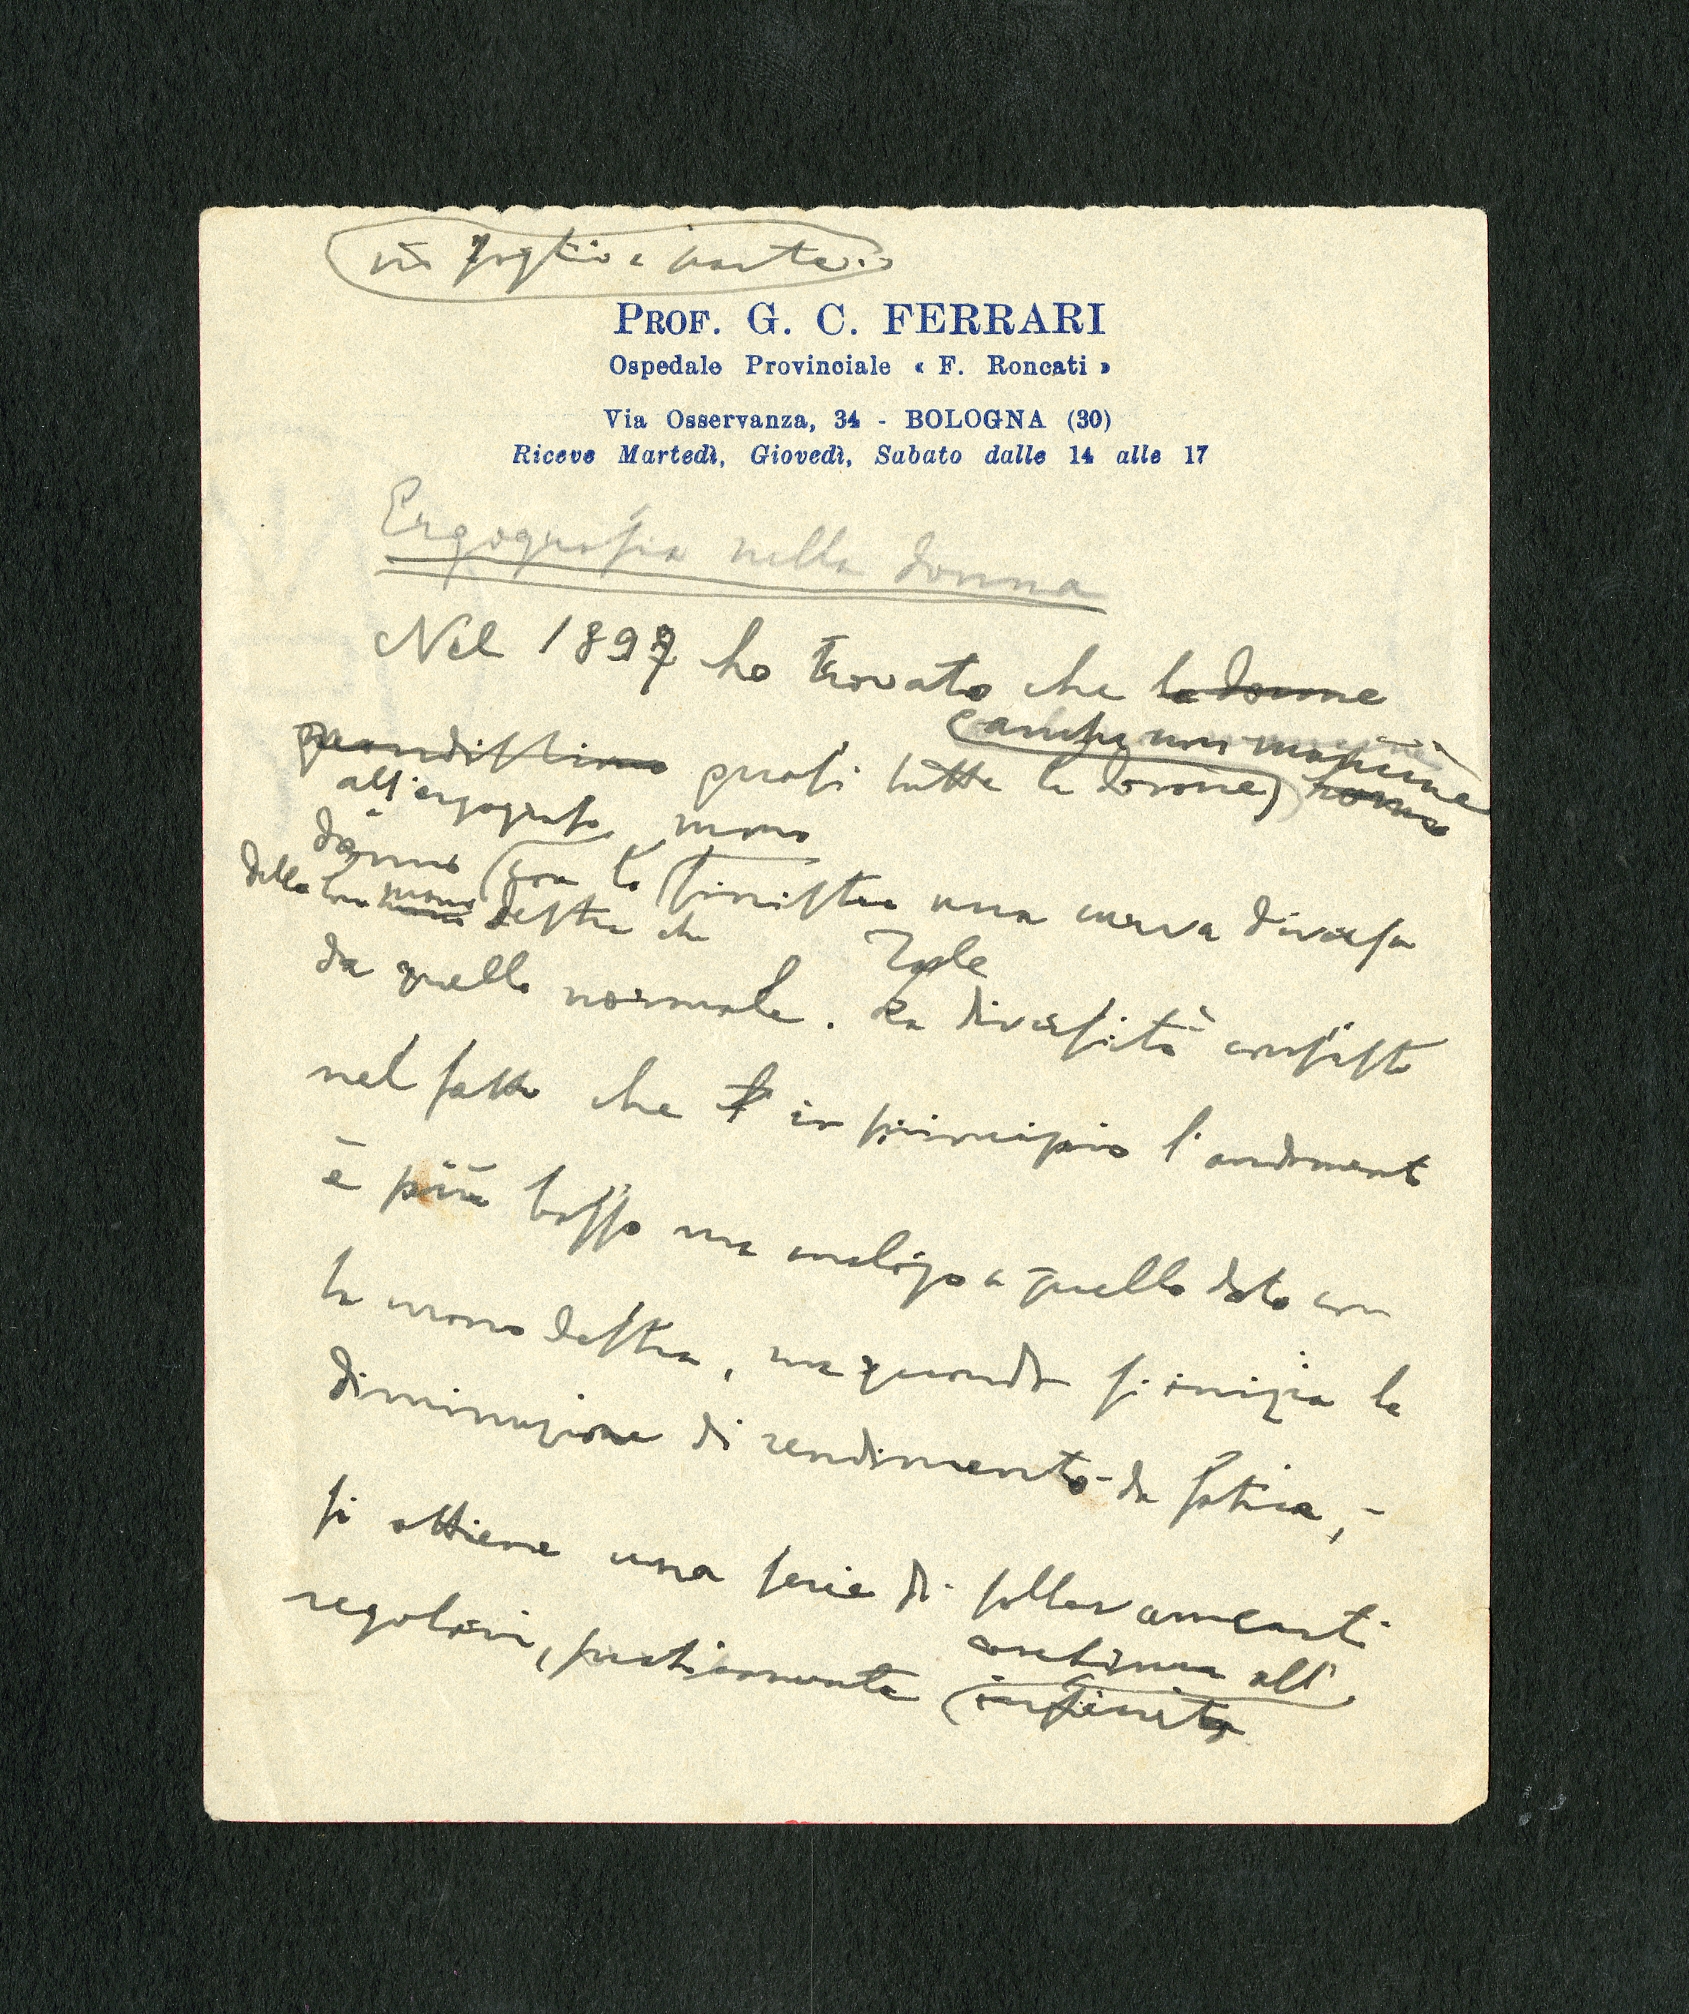 in foglio a parte.
PROF. G. C. FERRARI
Ospedale Provinciale « F. Roncati »
Via Osservanza, 34 - BOLOGNA (30)
Riceve Martedì, Giovedì, Sabato dalle 14 alle 17
Ergografia nella donna
Nel 1897 ho trovato che le donne
anche non mancine
quasi tutte le donne,
all'ergografo mano
danno con la sinistra una curva diversa
della loro mano destra che
da quella normale. La diversità consiste
Tale
nel fatto che in principio l'andamento
è più basso ma analogo a quello dato con
la mano destra, ma quando si inizia la
diminuzione di rendimento - da fatica, -
si ottiene una serie di sollevamenti
continua all'
regolari, praticamente infinita